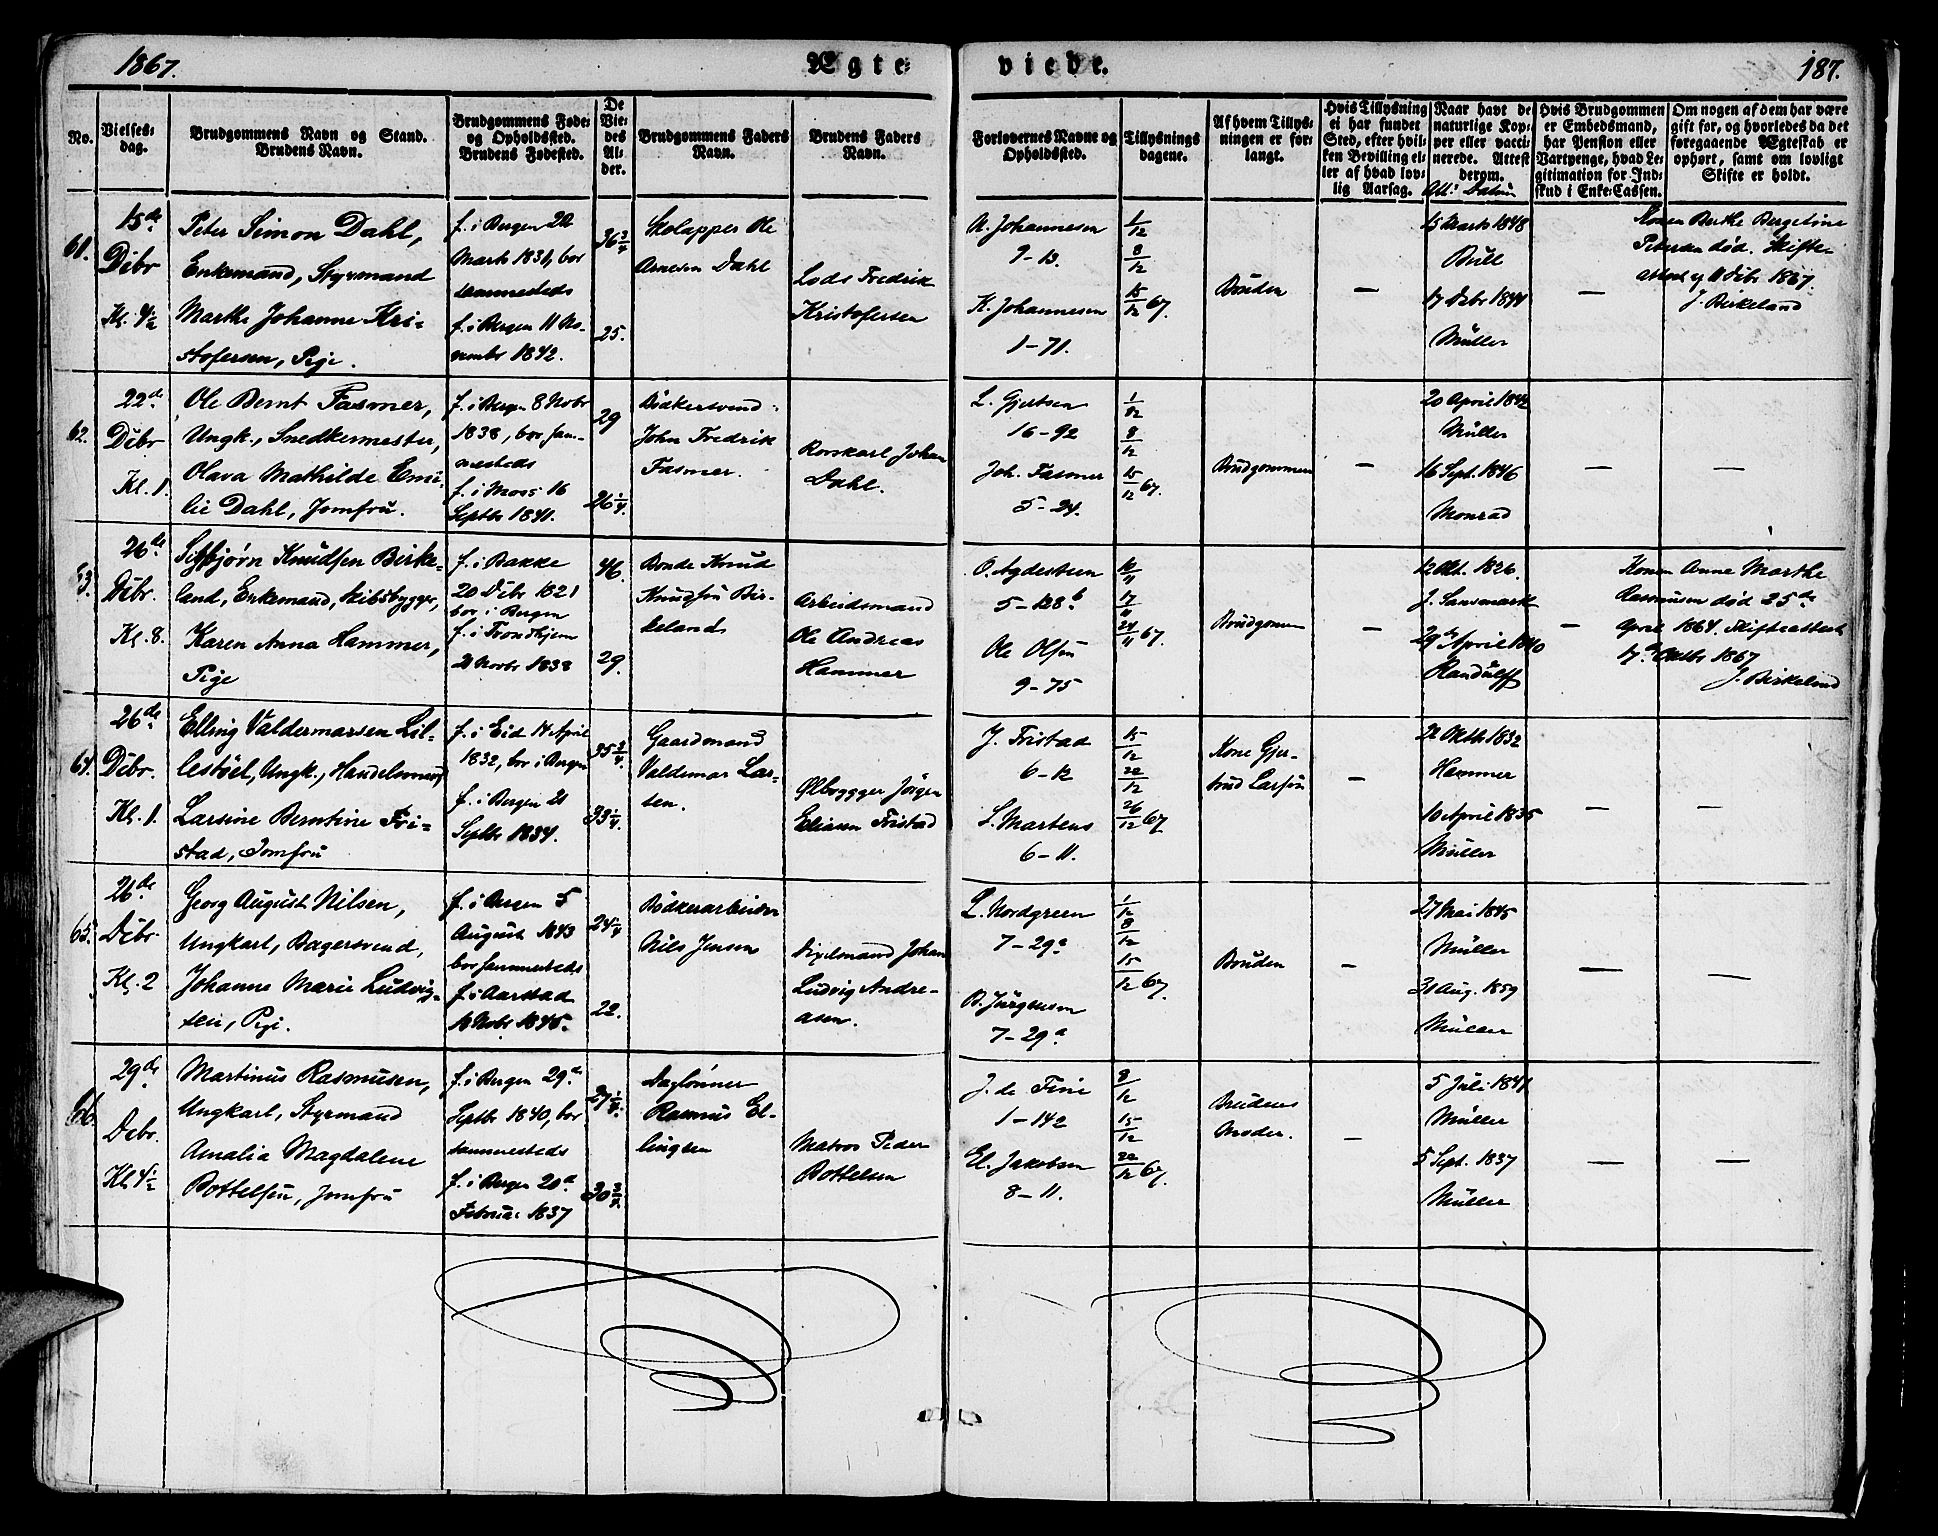 1867.
Ægte
viede.
187.
No.
Vielses-
dag.
Brudgommens Navn og Stand.
Brudens Navn.
Brudgommens Føde-
og Opholdssted.
Brudens Fødested.
De
Vie-
des
Al-
der.
Brudgommens Faders
Navn.
Brudens Faders
Navn.
Forlovernes Navne og
Opholdssted.
Tillysnings
dagene.
Af hvem Tillys-
ningen er for-
langt.
Hvis Tillysning
ei har fundet
Sted, efter hvil-
ken Bevilling el-
ler af hvad lov-
lig Aarsag.
Naar havt de
naturlige Kop-
per eller vacci-
nerede. Attest
derom.
Att: Datum
Hvis Brudgommen
er Embedsmand,
har Pension eller
Vartpenge, hvad Le-
gitimation for Ind-
skud i Enke-Cassen.
Om nogen af dem har være
gift før, og hvorledes da det
foregaaende Ægteskab er
ophørt, samt om lovligt
Skifte er holdt.
61.
15de
Dcbr
Kl. 4½
Peter Simon Dahl,
Enkemand, Styrmand
Marthe Johanne Kri-
stofersen, Pige.
f. i Bergen 22
Marts 1831, bor
sammesteds
f. i Bergen 11 No-
vembr 1842.
36¾
25.
Skolapper Ole
Arnesen Dahl
Lods Fredrik
Kristofersen
N. Johannesen
9-13.
K. Johannesen
1-71.
1/12
8/12
15/12 67.
Bruden
—
15 Marts 1848
Bull
17 Debr 1844
Müller
—
Konen Berthe Bergetine
Petersen død. Skifte-
attest af 11 Dcbr 1867.
J. Birkeland
62.
22de
Dcbr
Kl. 1
Ole Bernt Fasmer,
Ungk., Snedkermester,
Olava Mathilde Emi-
lie Dahl, Jomfru.
f. i Bergen 8 Novbr
1838, bor sam-
mesteds
f. i Moss 16
Septbr 1841.
29
26¼
Bødkersvend
John Fredrik
Fasmer.
Rorskarl Johan
Dahl.
L. Gjertsen
16-92
Joh. Fasmer
5-24.
1/12
8/12
15/12 67.
Brudgommen
—
20 April 1842
Müller
16 Sept. 1846
Monrad
—
—
63.
26de
Dcbr.
Kl. 8.
Sigbjørn Knudsen Birke-
land, Enkemand, Skibsbygger,
Karen Anna Hammer,
Pige
f. i Bakke
20 Dcbr 1821
bor i Bergen
f. i Trondhjem
2 Novbr 1838
46.
29.
Bonde Knud
Knudsen Bir-
kelands
Arbeidsmand
Ole Andreas
Hammer
O. Agdesteen
5-128b
Ole Olsen
9-75
10/11
17/11
24/11 67.
Brudgommen
—
12 Okt. 1826.
29de April 1840
Randulff
—
Konen Anne Marthe
Rasmusen død 25de
April 1864. Skifteattest
17de Oktbr 1867
J. Birkeland
64.
26de
Dcbr.
Kl. 1.
Elling Valdemarsen Lil-
lestøel, Ungk., Handelsmand
Larsine Berntine Fri-
stad, Jomfru
f. i Eid 14 April
1832, bor i Bergen
f. i Bergen 21
Septbr 1834.
35¾
33¼.
Gaardmand
Valdemar Lar-
sen.
Ølbrygger Jørgen
Eliasen Fristad
J. Fristad
6-12
S. Martens
6-11.
15/12
22/12
26/12 67.
Kone Gjer-
trud Larsen
—
22 Oktb 1832
Hammer
10 April 1835
Müller
—
—
65.
26de
Dcbr
Kl. 2
Georg August Nilsen,
Ungkarl, Bagersvend,
Johanne Marie Ludvig-
sen, Pige.
f. i Bergen 5
August 1843
bor sammesteds
f. i Aarstad
Novbr 1845.
24¼
22.
Bødkerarbeider
Nils Jensen
Johan
Ludvig Andre-
asen.
L. Nordgreen
7-29a
B. Jürgensen
7-29a
1/12
8/12
15/12 67.
Bruden
—
27 Mai 1845
Müller
31 Aug. 1859
Müller
—
—
66.
29de
Dcbr.
Kl 4½
Martinus Rasmusen,
Ungkarl, Styrmand
Amalia Magdalene
Bottelsen, Jomfru
f. i Bergen 29de
Septbr 1840, bor
sammesteds
f. i Bergen 20de
Februar 1837
27¼.
30¾.
Dagløner
Rasmus El-
lingsen
Matros Peder
Bottelsen
J. de Fine
1-142
El. Jakobsen
8-11.
8/12
15/12
22/12 67.
Brudens
Moder.
—
5 Juli 1841
Müller
5 Sept. 1837
Müller
—
—